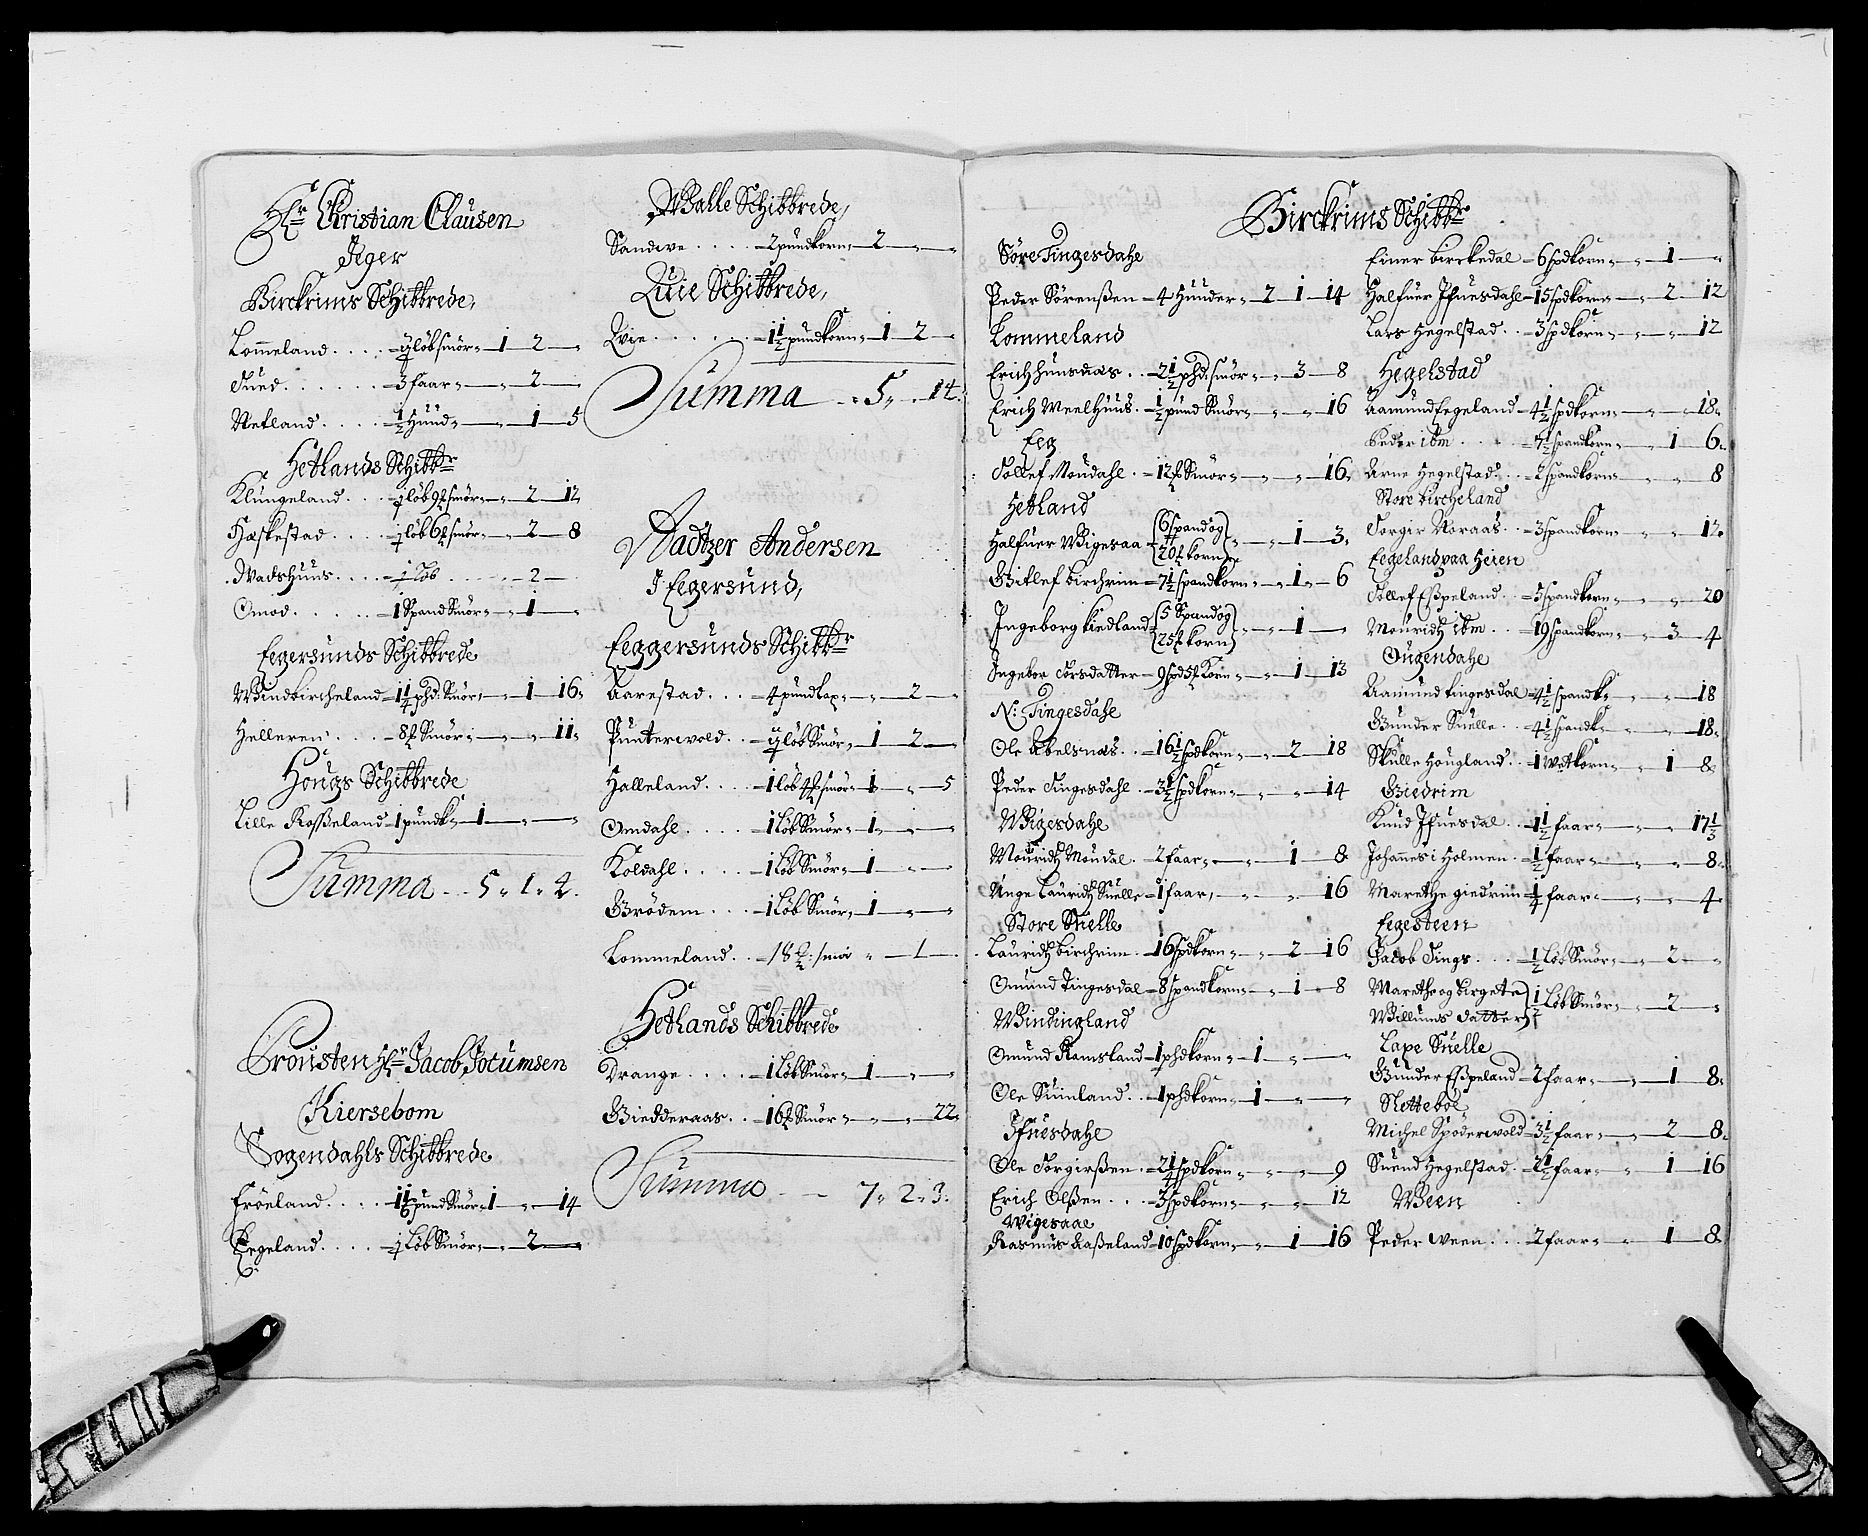 Hr Christian Clausen
Jeger
Birckrims Schibbrede,
Lom̄eland . . . . löb smör 1 2
Tued . . . . . . 3 faar 2
Netland . . . . ½ Hūnd 1 5
Hetlands Schibbr
Klungeland . . . löb 9 smör 2 12
Hæskestad . . . . löb 6 smör 2 8
Dvadshuus . . . . löb . . . . 2
Omod . . . . . . 1 Spand Smör 1
Eegersunds Schibbrede
Windbircheland 1¼ phd: Smör 1 16
Helleren . . . . 8 Smör 11
Hougs Schibbrede
Lille Rosseland 1 pundk 1
Summa . . . 5 „ 1 „ 2.
Prousten Hr Jacob Jocumsen
Kiersebom
Sogendahls Schibbrede
Fröeland . . . . pund Smör 1 14
Eegeland . . . . Löb Smör 2
Walle Schibbrede,
Sandwe . . . . . 2 pundkorn 2
Qvie Schibbrede,
Qvie . . . . . . . 1½ pundkorn 1 2
Summa . . 5 „ . 14.
Madtzer Andersen
I Eegersund,
Eeggersunds Schibbr
Aarestad . . . 4 pund Lax 2
Puntervold . . löb Smör 1 2
Halleland . . . . 1 löb 4 smör 1 5
Omdahl . . . . . 1 Löb Smör 1
Koldahl . . . . . 1 Löb Smör 1
Grödem . . . . 1 Löb Smör 1
Lommeland . . 18 smör 1
Hetlands Schibbrede
Drange . . . . . 1 Löb Smör 1
Giedderaas . . 16 Smör 22
Summa . . . 7 „ 2 „ 3.
Birckrims Schibbr
Söre Tingesdahl
Peder Sörenßen 4 Huuder 2 1 14
Lommeland
Erich hunsaas . . 2½ phd: smör 3 8
Erich Meelhuus . ½ pund Smör 16
Eeg
Tollef Moudahl . 12 Smör 16
Hetland
Halfuer Wigesaa 6 spand og 20 korn 1 3
Gitlef birchrim 7½ spandkorn 1 6
Ingeborg kiedland 5 Spand og 25 korn 1
Ingebor Torsdatter 9 spd 5 Korn 1 13
N: Tingesdahl
Ole Abelsnæs . . 16½ spdkorn 2 18
Peder Tingesdahl . 3½ spdkorn 14
Wigesdahl
Mouridz Moudal . 2 faar 1 8
Unge Lauridz Suelle 1 faar 16
Store Suelle
Lauridz birchrim . 16 Spdkorn 2 16
Omund Tingesdal 8 spandkorn 1 8
Windingland
Omund Ramsland 1 phdkorn 1
Ole Suinland . . 1 phdkorn 1
Ifuesdahl
Ole Torgirßen . . 2¼ spdkorn 9
Erich Olßen . . . 3 spdkorn 12
Wigesaae
Rasmus Aaßeland 10 spdkorn 1 16
Einer birckedal 6 spdkorn 1
Halfuer Ifuesdahl 15 spdkorn 2 12
Lars Hegelstad . . 3 spdkorn 12
Hegelstad
Aamund Eegeland 4½ spdkorn 18
Peder ibm . . . . . 7½ spandkorn 1 6
Arne Hegelstad . . 2 spandkorn 8
Store bircheland
Torgir Noraas . . 3 spandkorn 12
Eegeland paa Heien
Tollef Eßpeland . . 5 spandkorn 20
Mouridz ibm . . 19 spandkorn 3 4
Ougendahl
Aamund tingesdal 4½ spandk 18
Gunder Suelle . . 4½ spandk 18
Skulle Hougland . . 1 wetkorn 1 8
Giedrim
Knud Ifuesdal . . 1½ faar 17⅓
Johannes i Holmen . ½ faar 8
Marethe giedrim ¼ faar 4
Eegesteen
Jacob Tings . . . . ½ Löb Smör 2
Marethe og birgete
Willums datter ½ Löb Smör 2
Lape Suelle
Gunder Eßpeland 2 faar 1 8
Sletteböe
Michel Spoderwold 3½ faar 2 8
Suend Hegelstad . . 2½ faar 1 16
Ween
Peder Ween . . . 2 faar 1 8